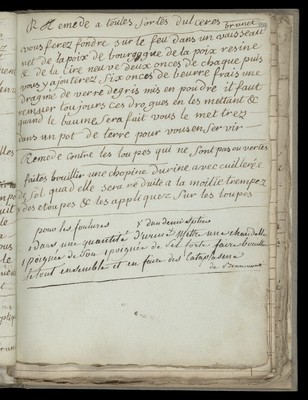 Remede a toutes sortes dulceres brunet
vous ferez fondre sur le feu dans un vaisseau
net de la poix de bourgogne de la poix resine
& de la cire neuve deux onces de chaque puis
vous y ajouterez six onces de beurre frais une
dragme de verre degris mis en poudre il faut
remuer toujours ces drogues en les mettant &
quand le baume sera fait vous le mettrez
dans un pot de terre pour vous en servir
Remede contre les loups qui ne sont pas ouvertes
faites bouillir une chopine durine avec cuilleréé
de sel quad elle sera réduite a la moitie trempez
des etoupes & les appliquez sur les loups
pour les foulures
dans une quantité d'urine Mettre une chandelle
1 poignée de son 1 poignée de sel forte faire bouillir
le tout ensemble et en faire des Cataplasme